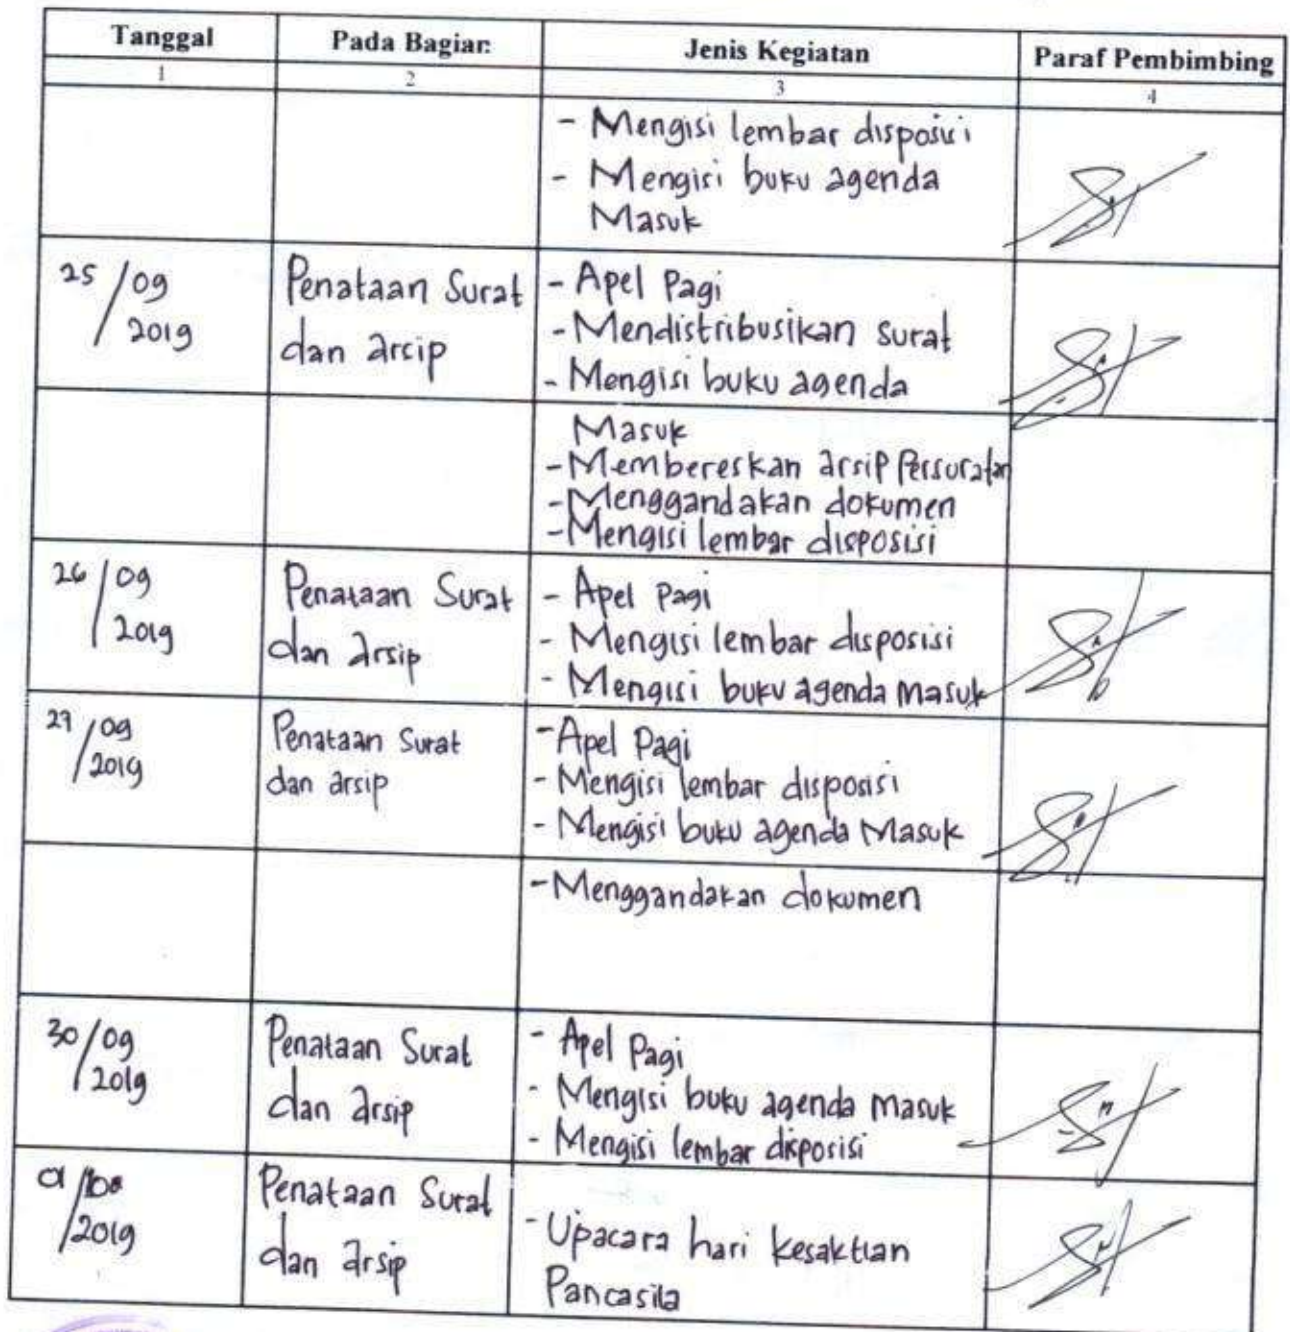 Tanggal Pada Bagian Jenis Kegiatan Paraf Pembimbing
1 2 3 4
- Mengisi lembar disposisi
- Mengisi buku agenda
Masuk
25/09 2019
Penataan Surat
dan arsip
- Apel Pagi
- Mendistribusikan surat
- Mengisi buku agenda
Masuk
- Membereskan arsip Persuratan
- Menggandakan dokumen
- Mengisi lembar disposisi
26/09 2019
Penataan Surat
dan arsip
- Apel Pagi
- Mengisi lembar disposisi
- Mengisi buku agenda masuk
27/09 2019
Penataan Surat
dan arsip
- Apel Pagi
- Mengisi lembar disposisi
- Mengisi buku agenda Masuk
- Menggandakan dokumen
30/09 2019
Penataan Surat
dan arsip
- Apel Pagi
- Mengisi buku agenda masuk
- Mengisi lembar disposisi
01/10 2019
Penataan Surat
dan arsip
- Upacara hari kesaktian
Pancasila